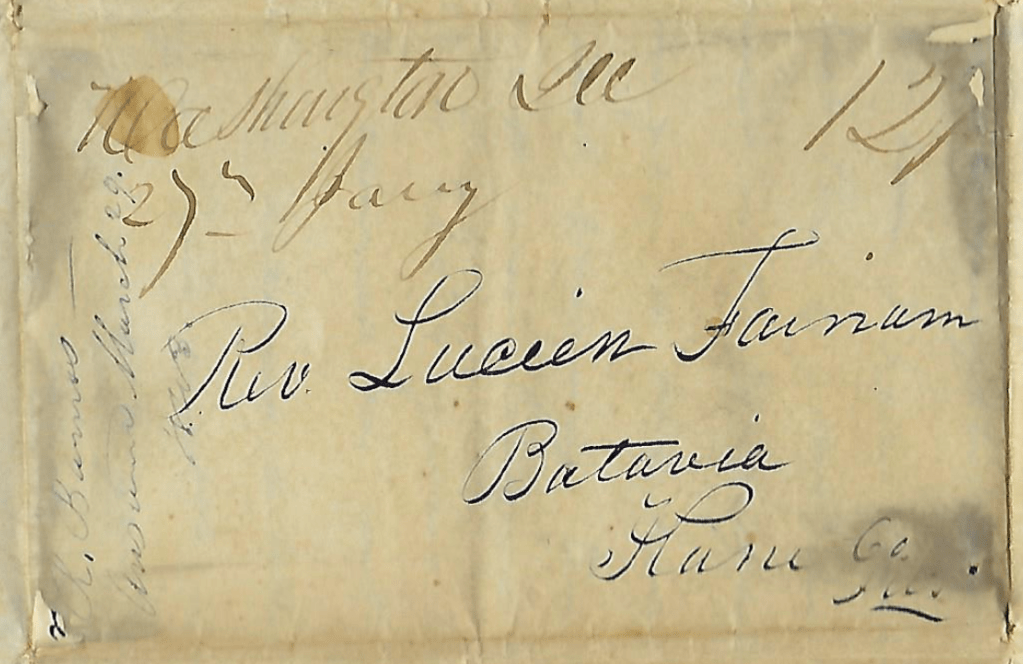 Washington Ill
12½
27th Jany
Rev. Lucien Farnam
Batavia
Kane Co
Ills.
R. Barnes
Answered March 29.